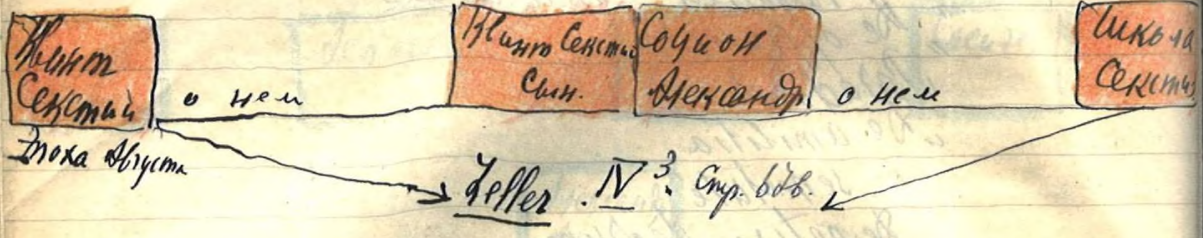 Квинт
Секстий
Эпоха Августа
о нем
Квинт Секстий
Сын.
Социон
Александр.
о нем
Школа
Секстия
Zeller. IV³. Стр.